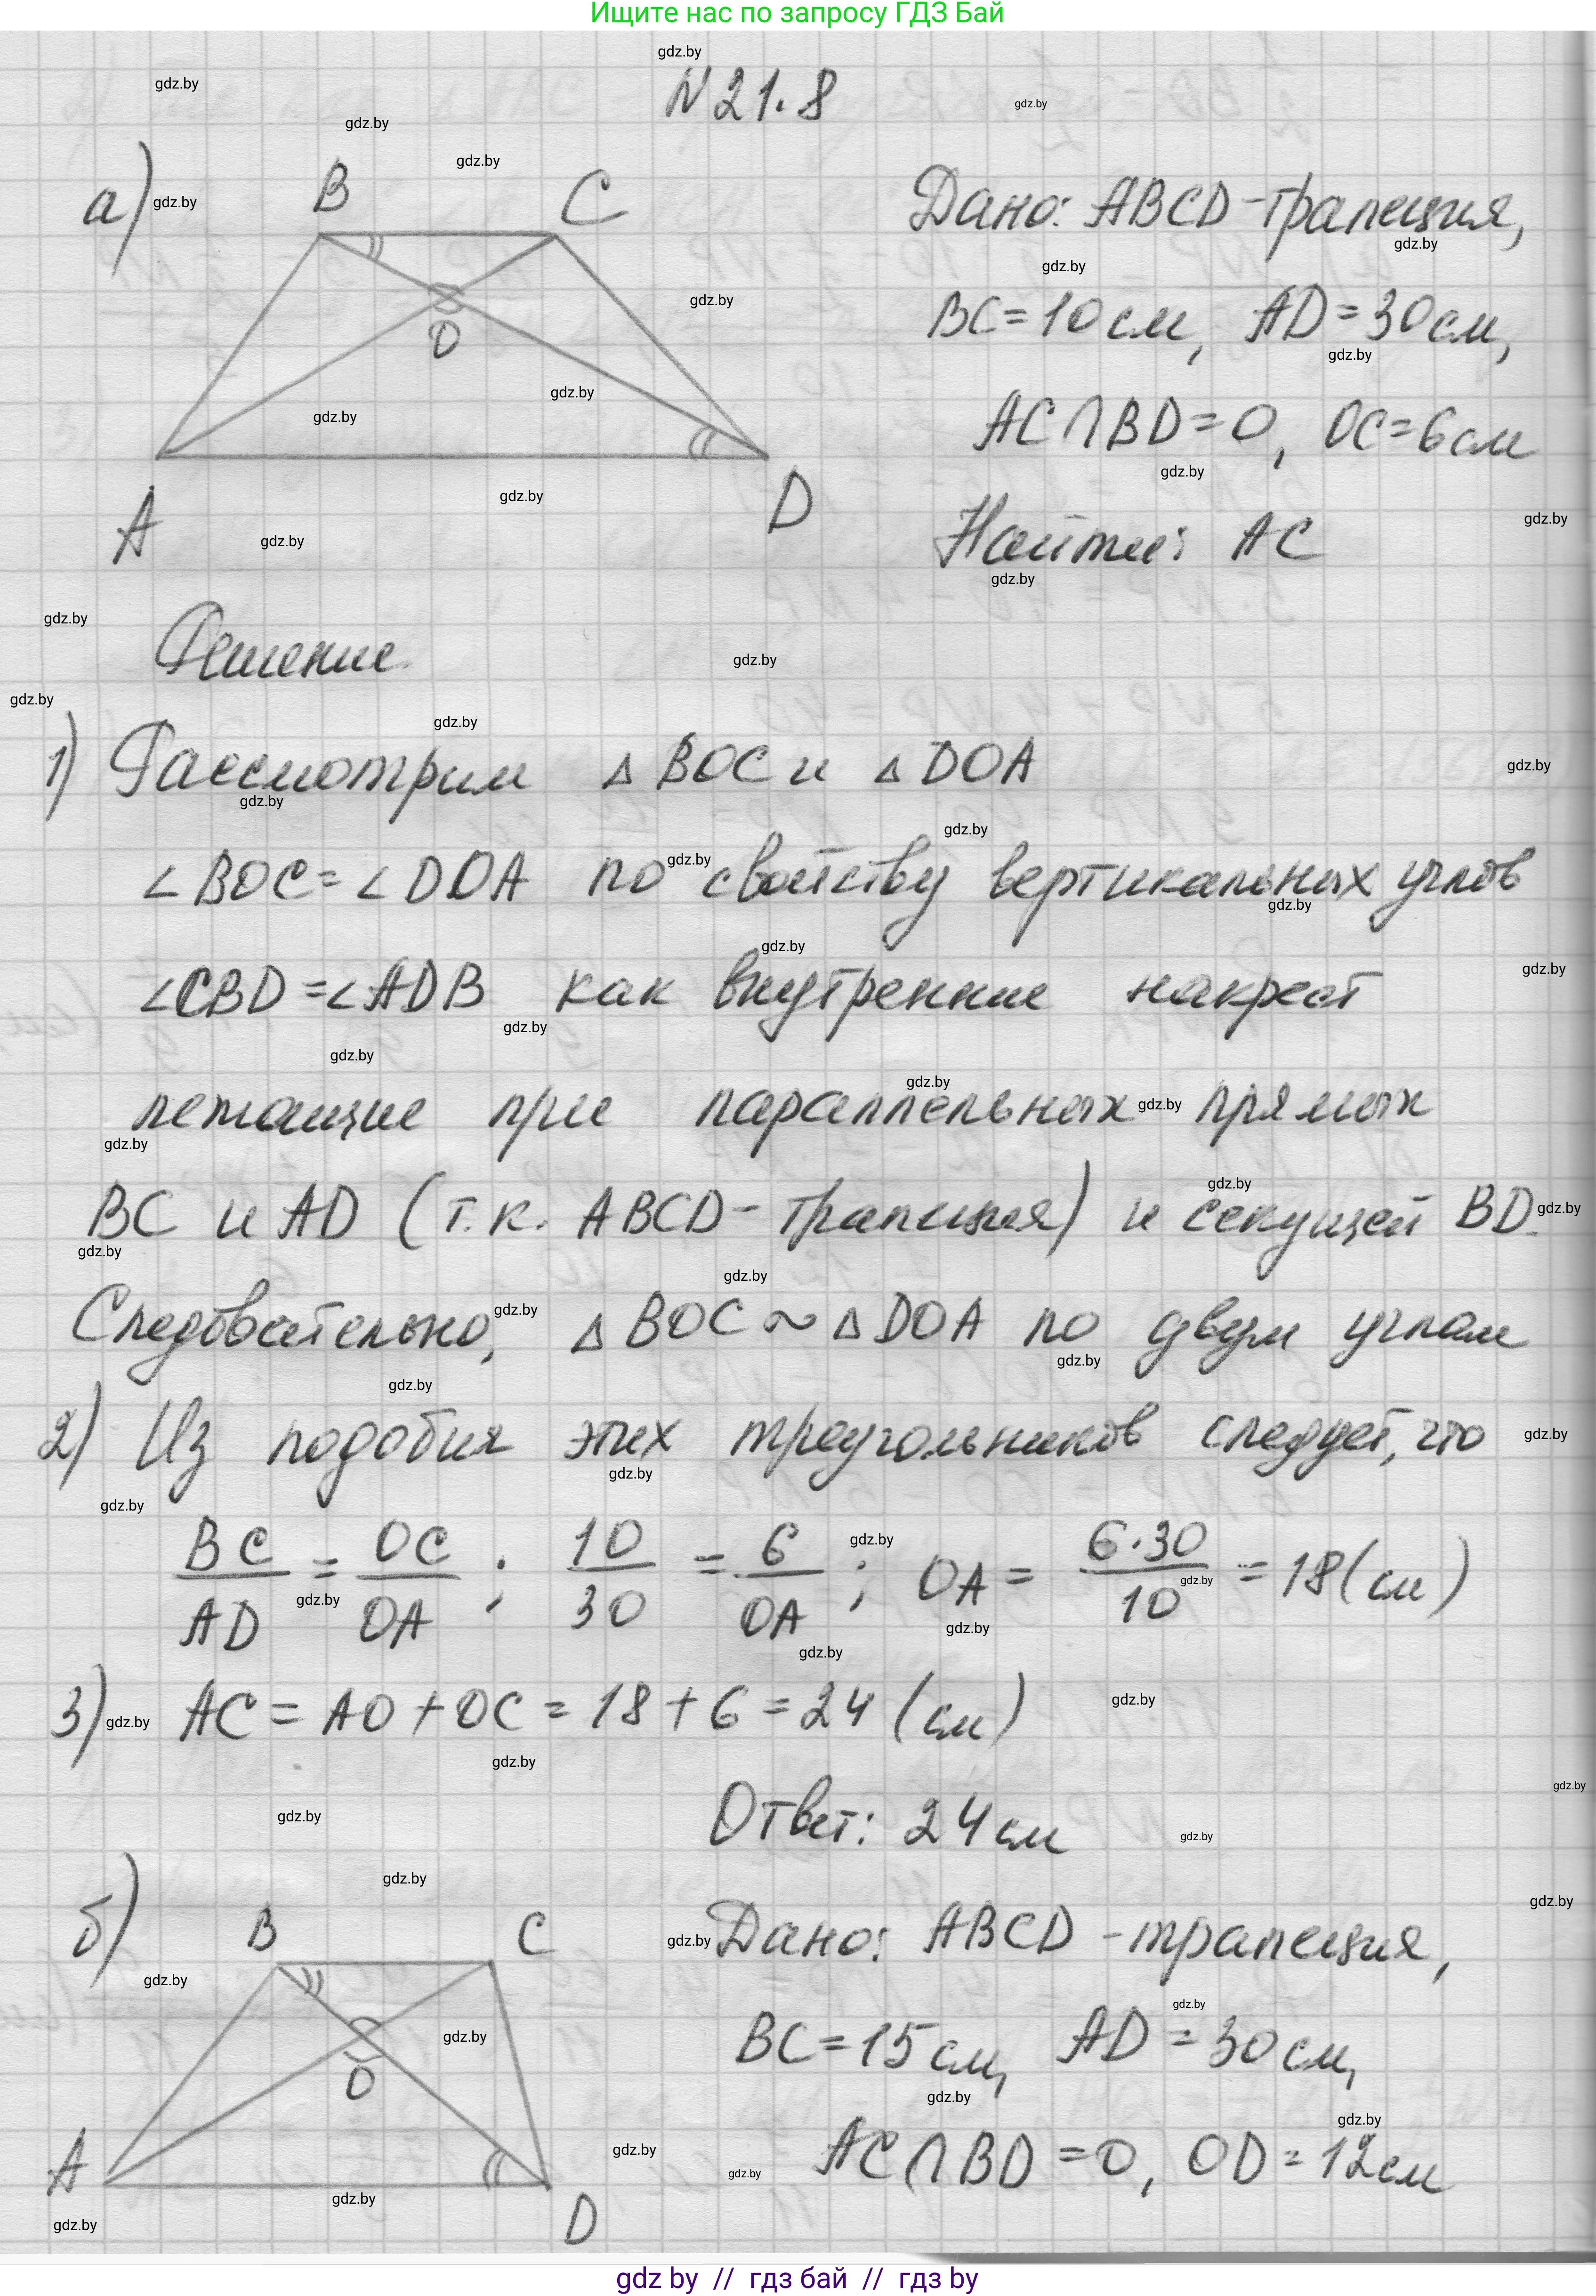 Ищите нас по запросу ГДЗ Бай
N 21.8
а)
B C
O
A D
Дано: ABCD-трапеция,
BC=10см, AD=30см,
AC∩BD=O, OC=6см
Найти: AC
Решение
1) Рассмотрим △BOC и △DOA
∠BOC=∠DOA по свойству вертикальных углов
∠CBD=∠ADB как внутренние накрест
лежащие при параллельных прямых
BC и AD (т.к. ABCD-трапеция) и секущей BD.
Следовательно, △BOC~△DOA по двум углам
2) Из подобия этих треугольников следует, что
BC/AD = OC/OA; 10/30 = 6/OA; OA = 6·30/10 = 18(см)
3) AC = AO+OC = 18+6 = 24 (см)
Ответ: 24см
б)
B C
O
A D
Дано: ABCD-трапеция,
BC=15см, AD=30см,
AC∩BD=O, OD=12см
gdz by // гдз бай // гдз by